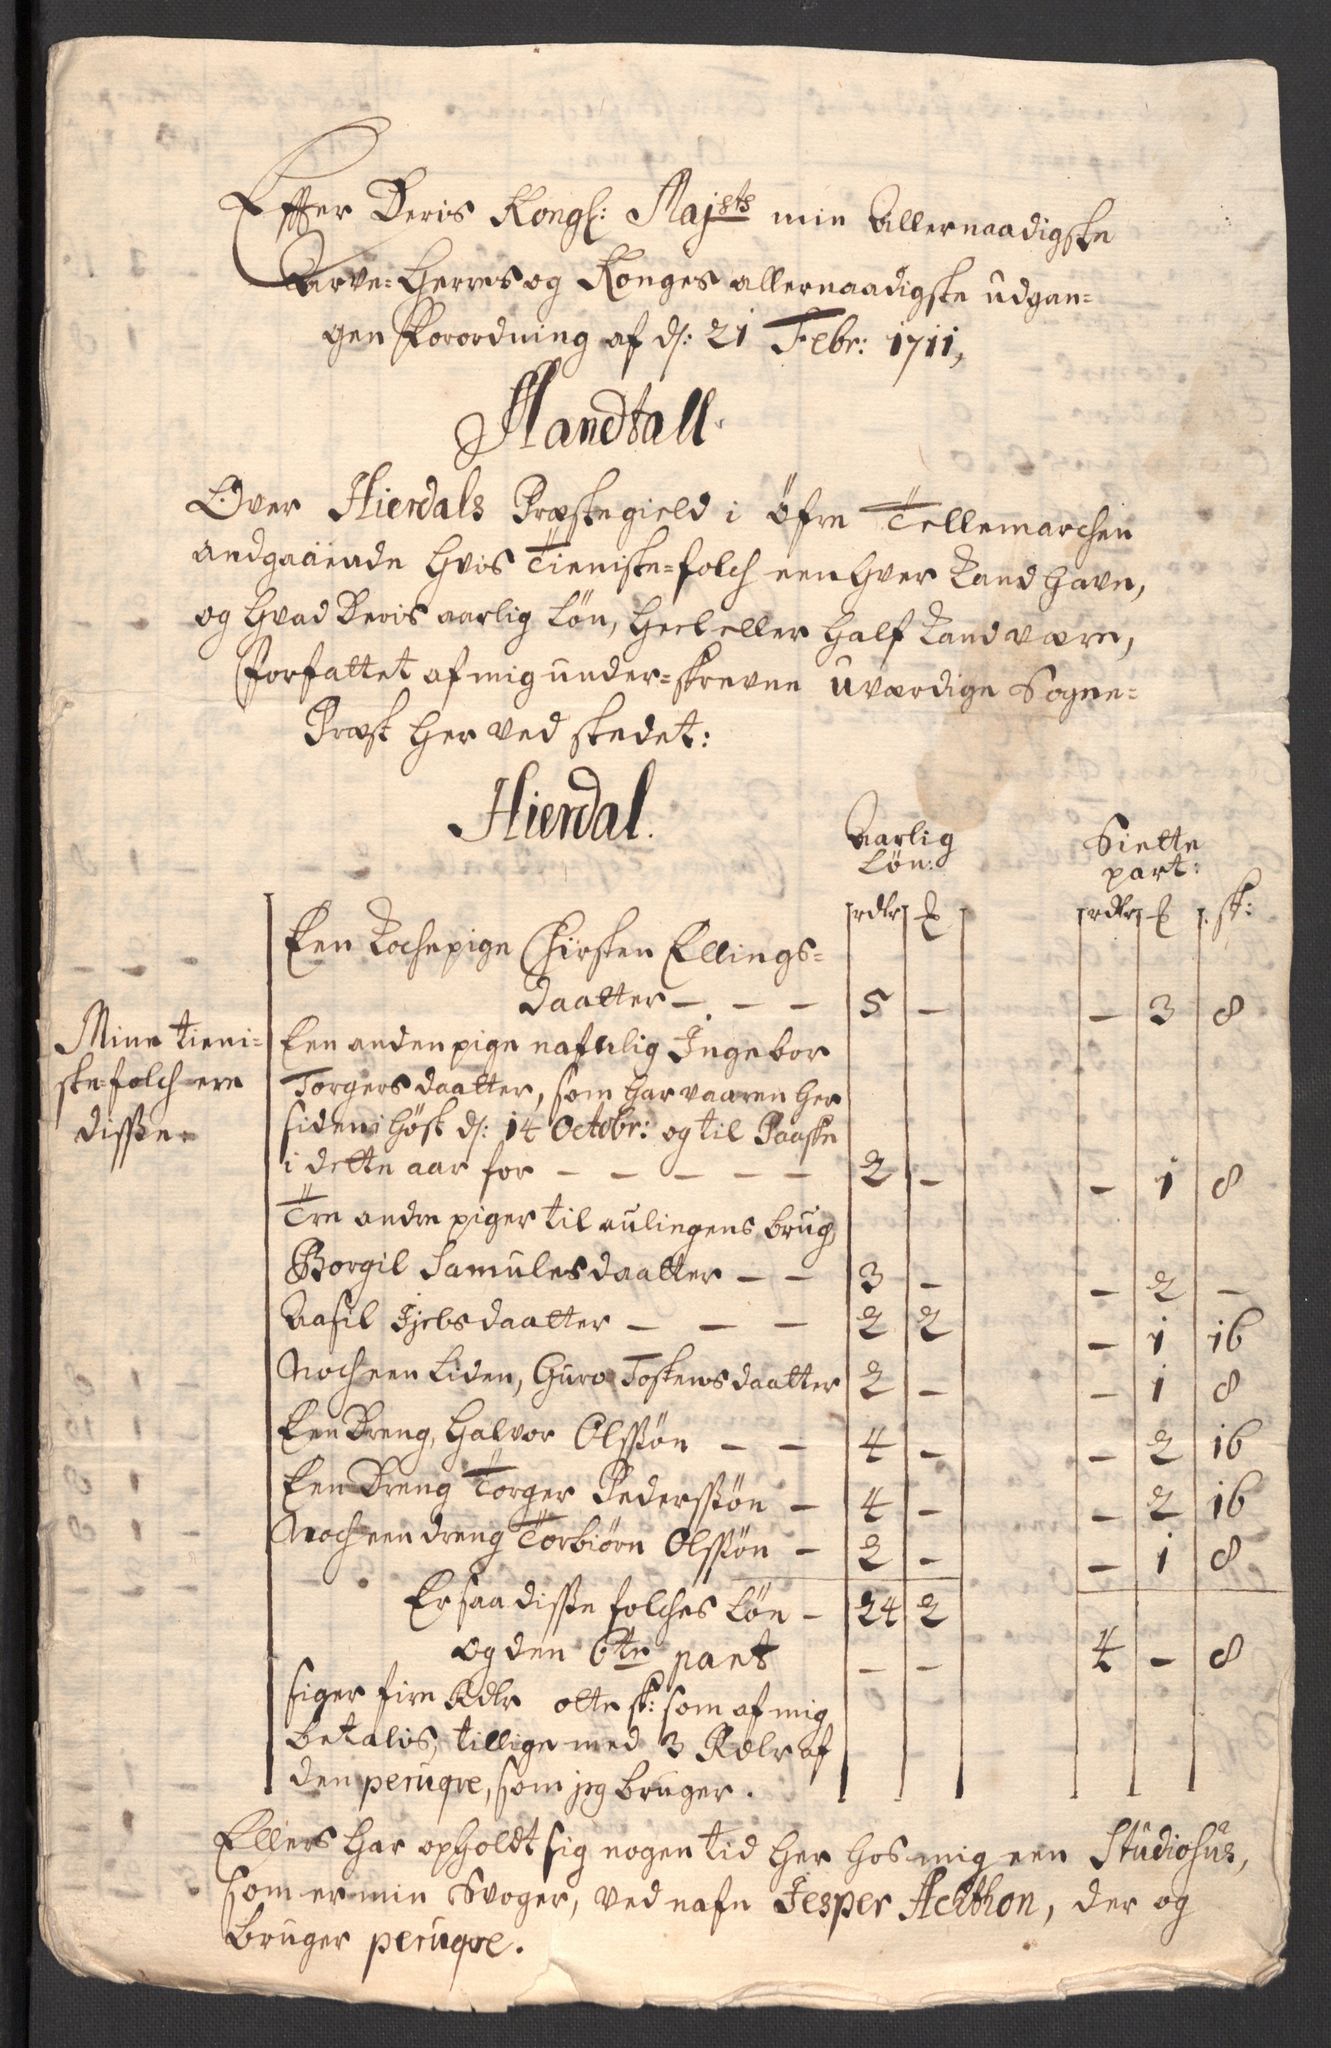 Effter Deris Kongl: Majsts min Allernaadigste
Arve-Herres og Konges allernaadigste udgan-
gen Forordning af d: 21 Febr: 1711,
Mandtall
Over Hierdals Præstegield i Öfre Tellemarchen
andgaaende hvis Tieniste-folch een hver kand have,
og hvad Deris aarlig Løn, heel eller half kand være,
forfattet af mig under-skrevne uværdige Sogne-
Præst her ved stedet:
Hierdal.
Aarlig Løn: Siette part:
rdlr rdlr sk:
Een Kochepige Chirsten Ellings-
daatter - - - 5 - - 3 8
Mine tieni-
ste-folch ere
disse.
Een anden pige nafnlig Ingebor
Torgersdaatter, som har vaaren her
siden i höst d: 14 Octobr: og til Paaske
i dette aar for - - - - - 2 - - 1 8
Tre andre piger til aulingens brug
Borgil Samulesdaatter - - 3 - - 2 -
Aasil Ijebsdaatter - - - 2 2 - 1 16
Noch een liden, Guro Tostensdaatter 2 - - 1 8
Een Dreng, Halvor Olssøn - - 4 - - 2 16
Een Dreng Torger Pederssøn - 4 - - 2 16
Noch een dreng Torbiörn Olssøn - 2 - - 1 8
Er saa disse folches Løn - 24 2
og den 6te part - - 4 - 8
siger fire Rdlr otte sk: som af mig
betalis, tillige med 3 Rdlr af
den peruqve, som jeg bruger.
Ellers har opholdt sig nogen tid her hos mig een Studiosus,
som er min Svoger, ved nafn Jesper Achthon, der og
bruger peruqve.